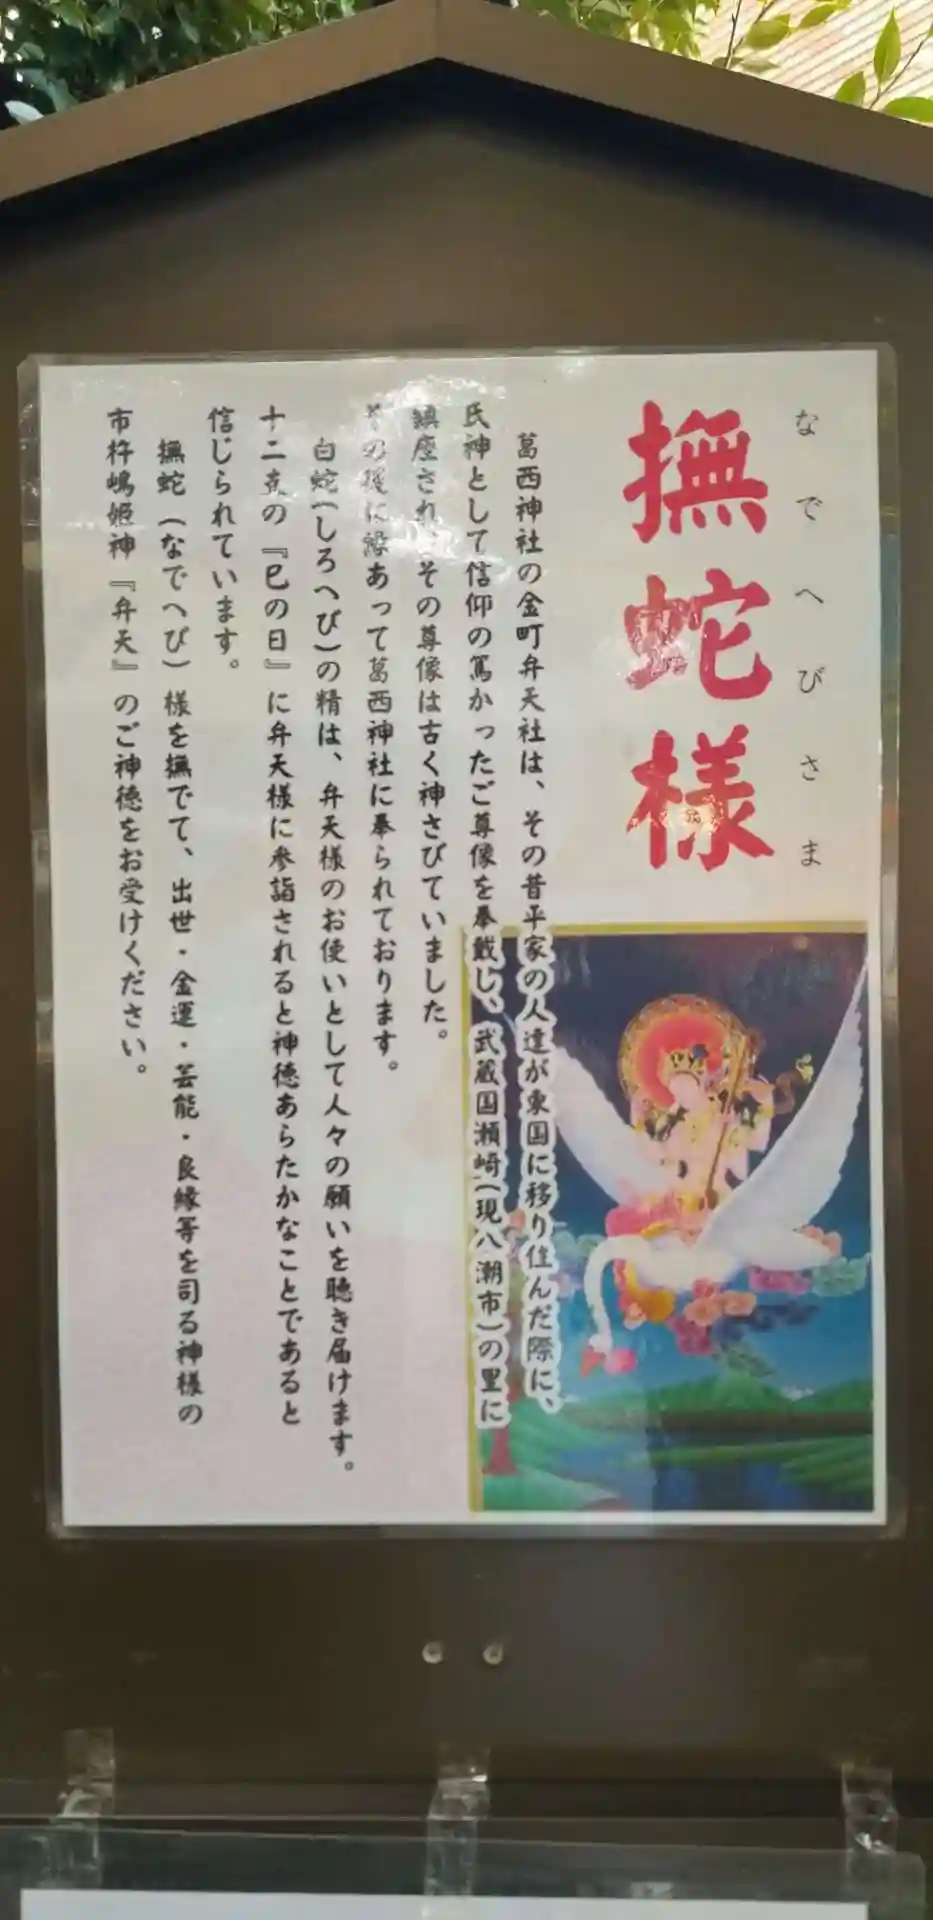 なでへびさま
撫蛇様
葛西神社の金町弁天社は、その昔平家の人達が東国に移り住んだ際に、
氏神として信仰の篤かったご尊像を奉戴し、武蔵国瀬崎(現八潮市)の里に
鎮座され、その尊像は古く神さびていました。
その後に縁あって葛西神社に奉られております。
白蛇(しろへび)の精は、弁天様のお使いとして人々の願いを聴き届けます。
十二支の『巳の日』に弁天様に参詣されると神徳あらたかなことであると
信じられています。
撫蛇(なでへび)様を撫でて、出世・金運・芸能・良縁等を司る神様の
市杵嶋姫神『弁天』のご神徳をお受けください。